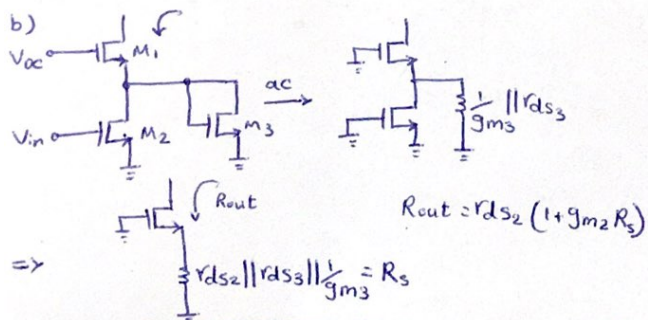 b)
VDC M1
Vin M2 M3
ac
1/gm3 || rds3
Rout
Rout = rds2 (1+gm2 Rs)
=> rds2||rds3||1/gm3 = Rs